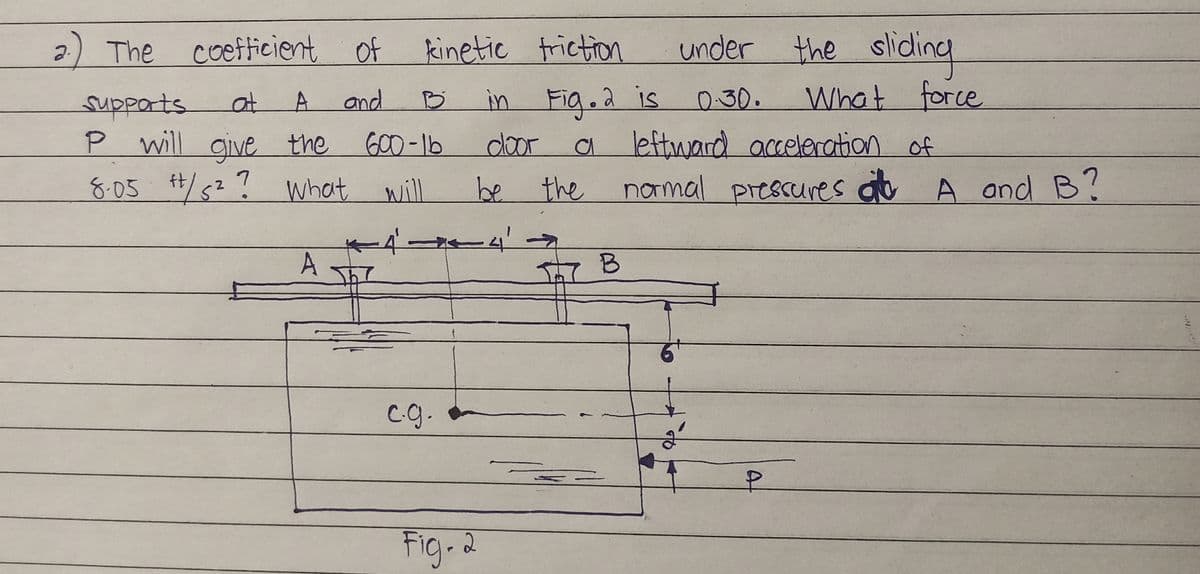 2.) The coefficient of kinetic friction under the sliding
supports at A and B in Fig. 2 is 0.30. What force
P will give the 600-lb door a leftward acceleration of
8.05 ft/s² ? what will be the normal pressures at A and B?
4' 4'
A B
6'
c.g.
2'
P
Fig. 2